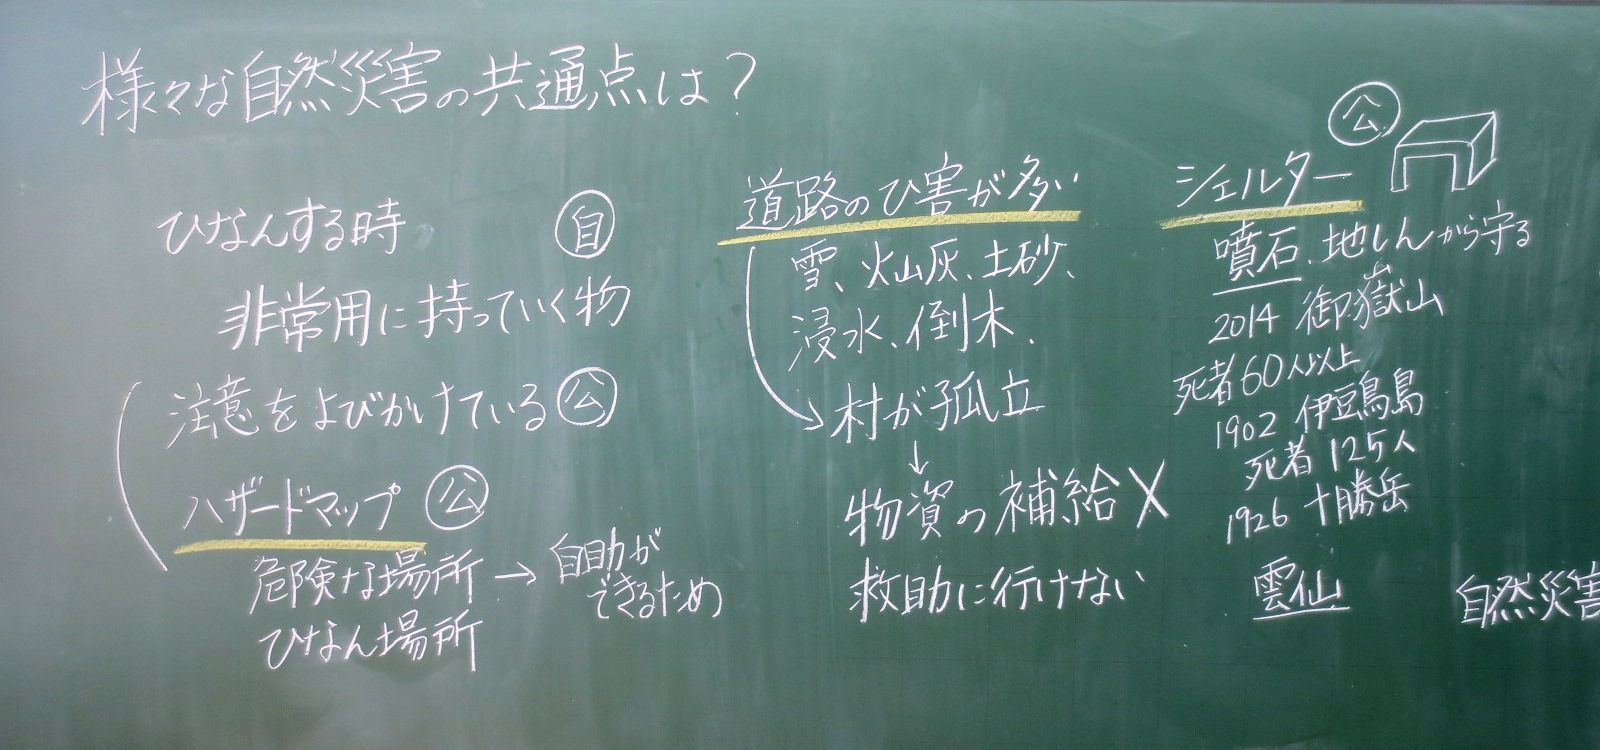 様々な自然災害の共通点は？
ひなんする時 自
非常用に持っていく物
注意をよびかけている 公
ハザードマップ 公
危険な場所 → 自助が
できるため
ひなん場所
道路のひ害が多い
雪、火山灰、土砂、
浸水、倒木、
村が孤立
↓
物資の補給 X
救助に行けない
公
シェルター
噴石、地しんから守る
2014 御嶽山
死者60人以上
1902 伊豆鳥島
死者 125人
1926 十勝岳
雲仙
自然災害